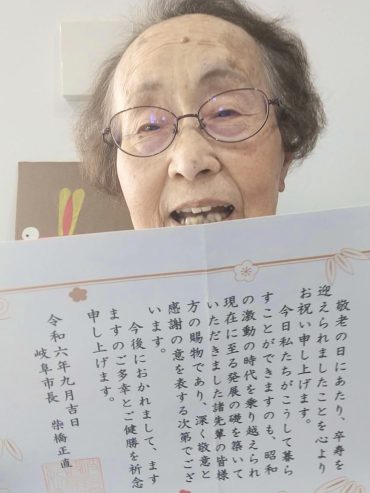 敬老の日にあたり、卒寿を
迎えられましたことを心より
お祝い申し上げます。
今日私たちがこうして暮ら
すことができますのも、昭和
の激動の時代を乗り越えられ
現在に至る発展の礎を築いて
いただきました諸先輩の皆様
方の賜物であり、深く敬意と
感謝の意を表する次第でござ
います。
今後におかれまして、ます
ますのご多幸とご健勝を祈念
申し上げます。
令和六年九月吉日
岐阜市長 柴橋正直